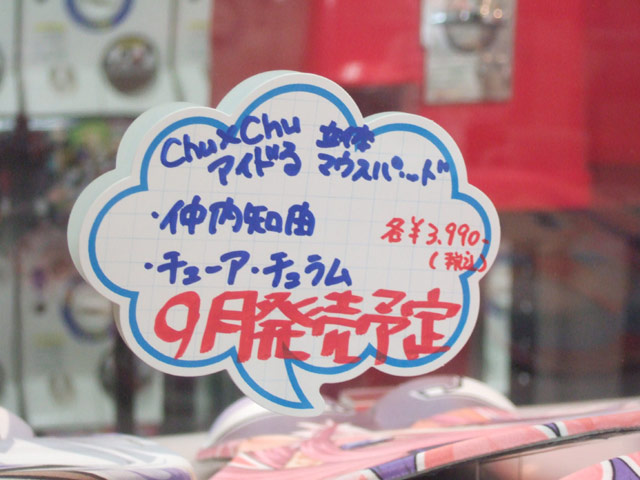 Chu×Chu
アイドる 立体マウスパッド
・仲内知由
・チューア・チュラム
各¥3,990.
(税込)
9月発売予定